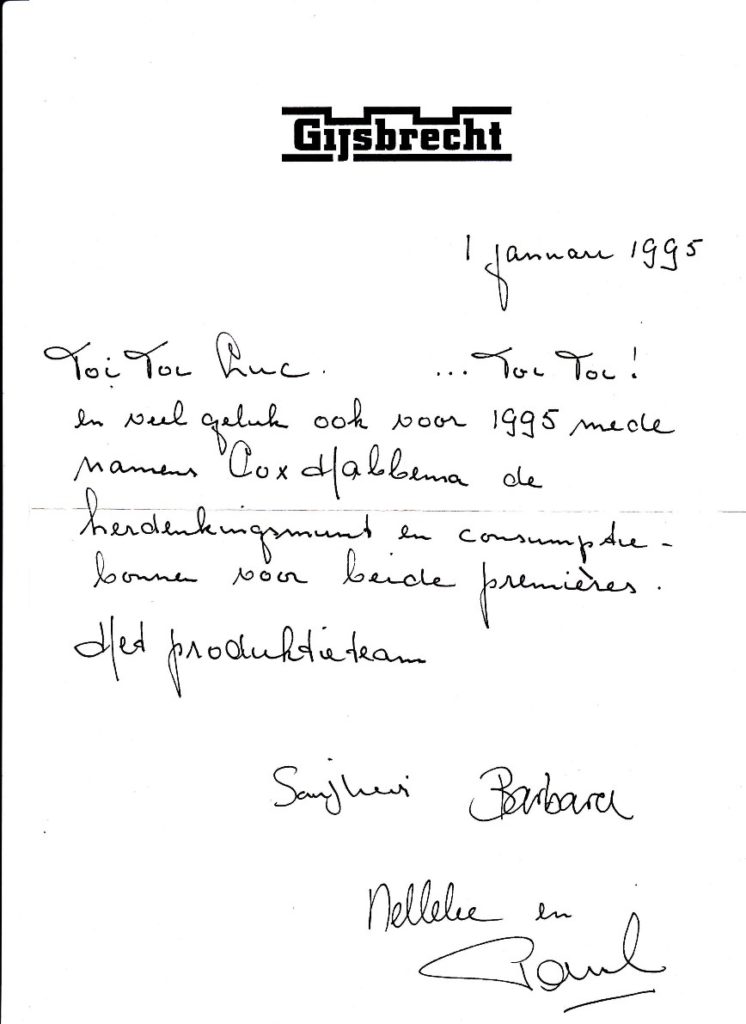 Gijsbrecht
1 januari 1995
Toi Toi Luc. ... Toi Toi!
en veel geluk ook voor 1995 mede
namens Cox Habbema de
herdenkingsmunt en consumptie-
bonnen voor beide premières.
Het produktieteam
Barbara
Nelleke en
Paul